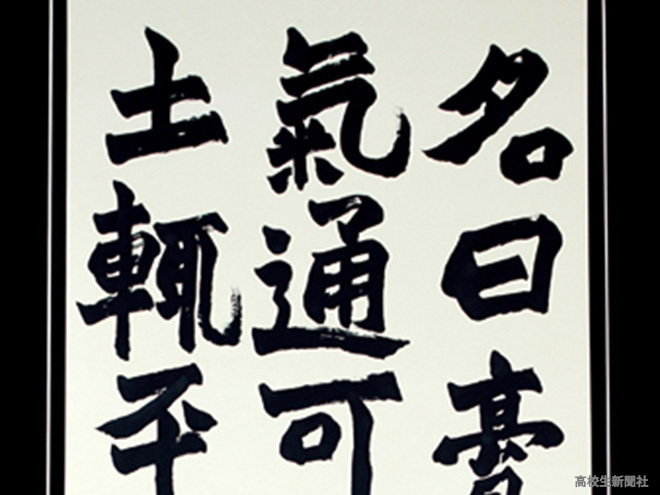 名曰膏
氣通可
土輒平
高校生新聞社